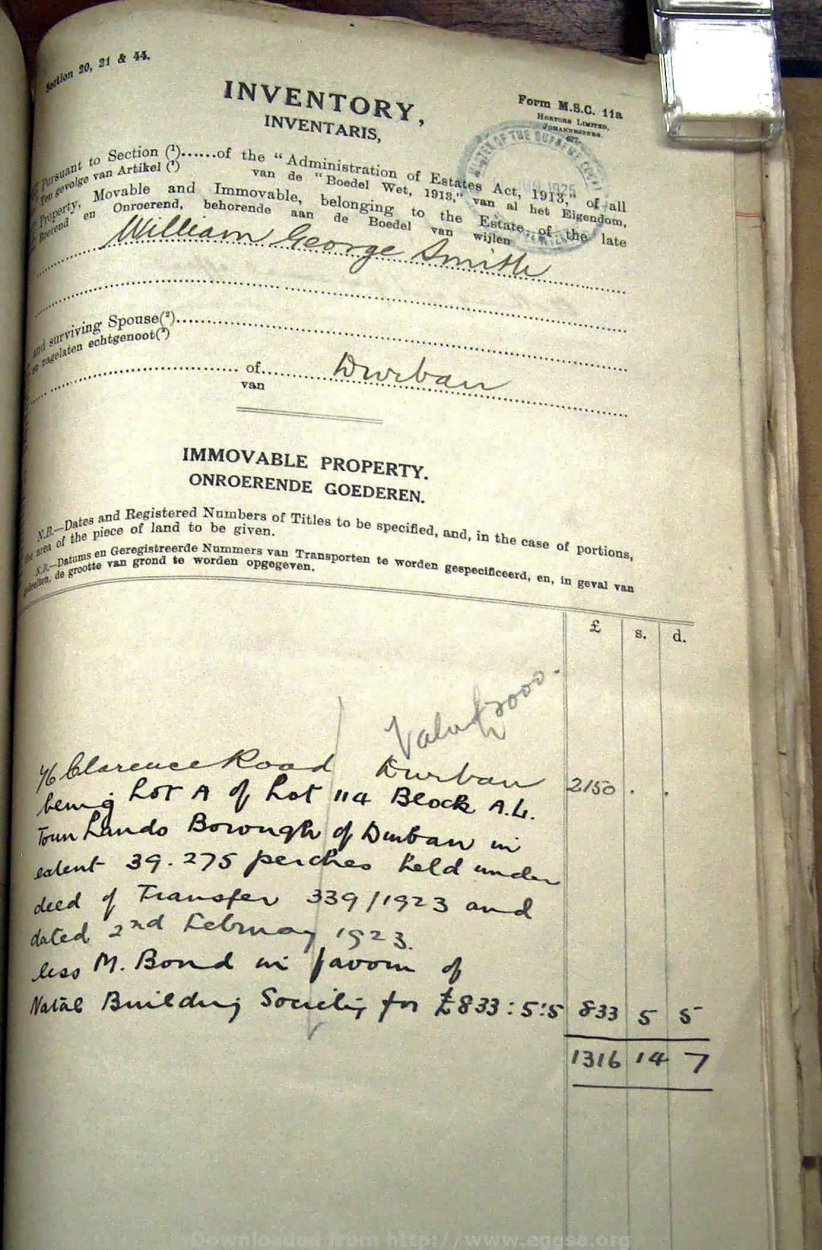 Section 20, 21 & 44.
Form M.S.C. 11a
HORTORS LIMITED,
JOHANNESBURG.
INVENTORY,
INVENTARIS,
MASTER OF THE SUPREME COURT
1925
Pursuant to Section (¹)......of the "Administration of Estates Act, 1913," of all
Ten gevolge van Artikel (¹) van de "Boedel Wet, 1913," van al het Eigendom,
Property, Movable and Immovable, belonging to the Estate of the late
Roerend en Onroerend, behorende aan de Boedel van wijlen
William George Smith
and surviving Spouse(²)
en nagelaten echtgenoot(²)
of Durban
van
IMMOVABLE PROPERTY.
ONROERENDE GOEDEREN.
N.B.—Dates and Registered Numbers of Titles to be specified, and, in the case of portions,
the area of the piece of land to be given.
N.B.—Datums en Geregistreerde Nummers van Transporten te worden gespecificeerd, en, in geval van
gedeelten, de grootte van grond te worden opgegeven.
£ s. d.
Value £2000.
Clarence Road Durban 2150 . .
being Lot A of Lot 114 Block A.L.
Town Lands Borough of Durban in
extent 39.275 perches held under
deed of Transfer 339/1923 and
dated 2nd February 1923.
less M. Bond in favour of
Natal Building Society for £833:5:5 833 5 5
1316 14 7
Downloaded from http://www.eggsa.org